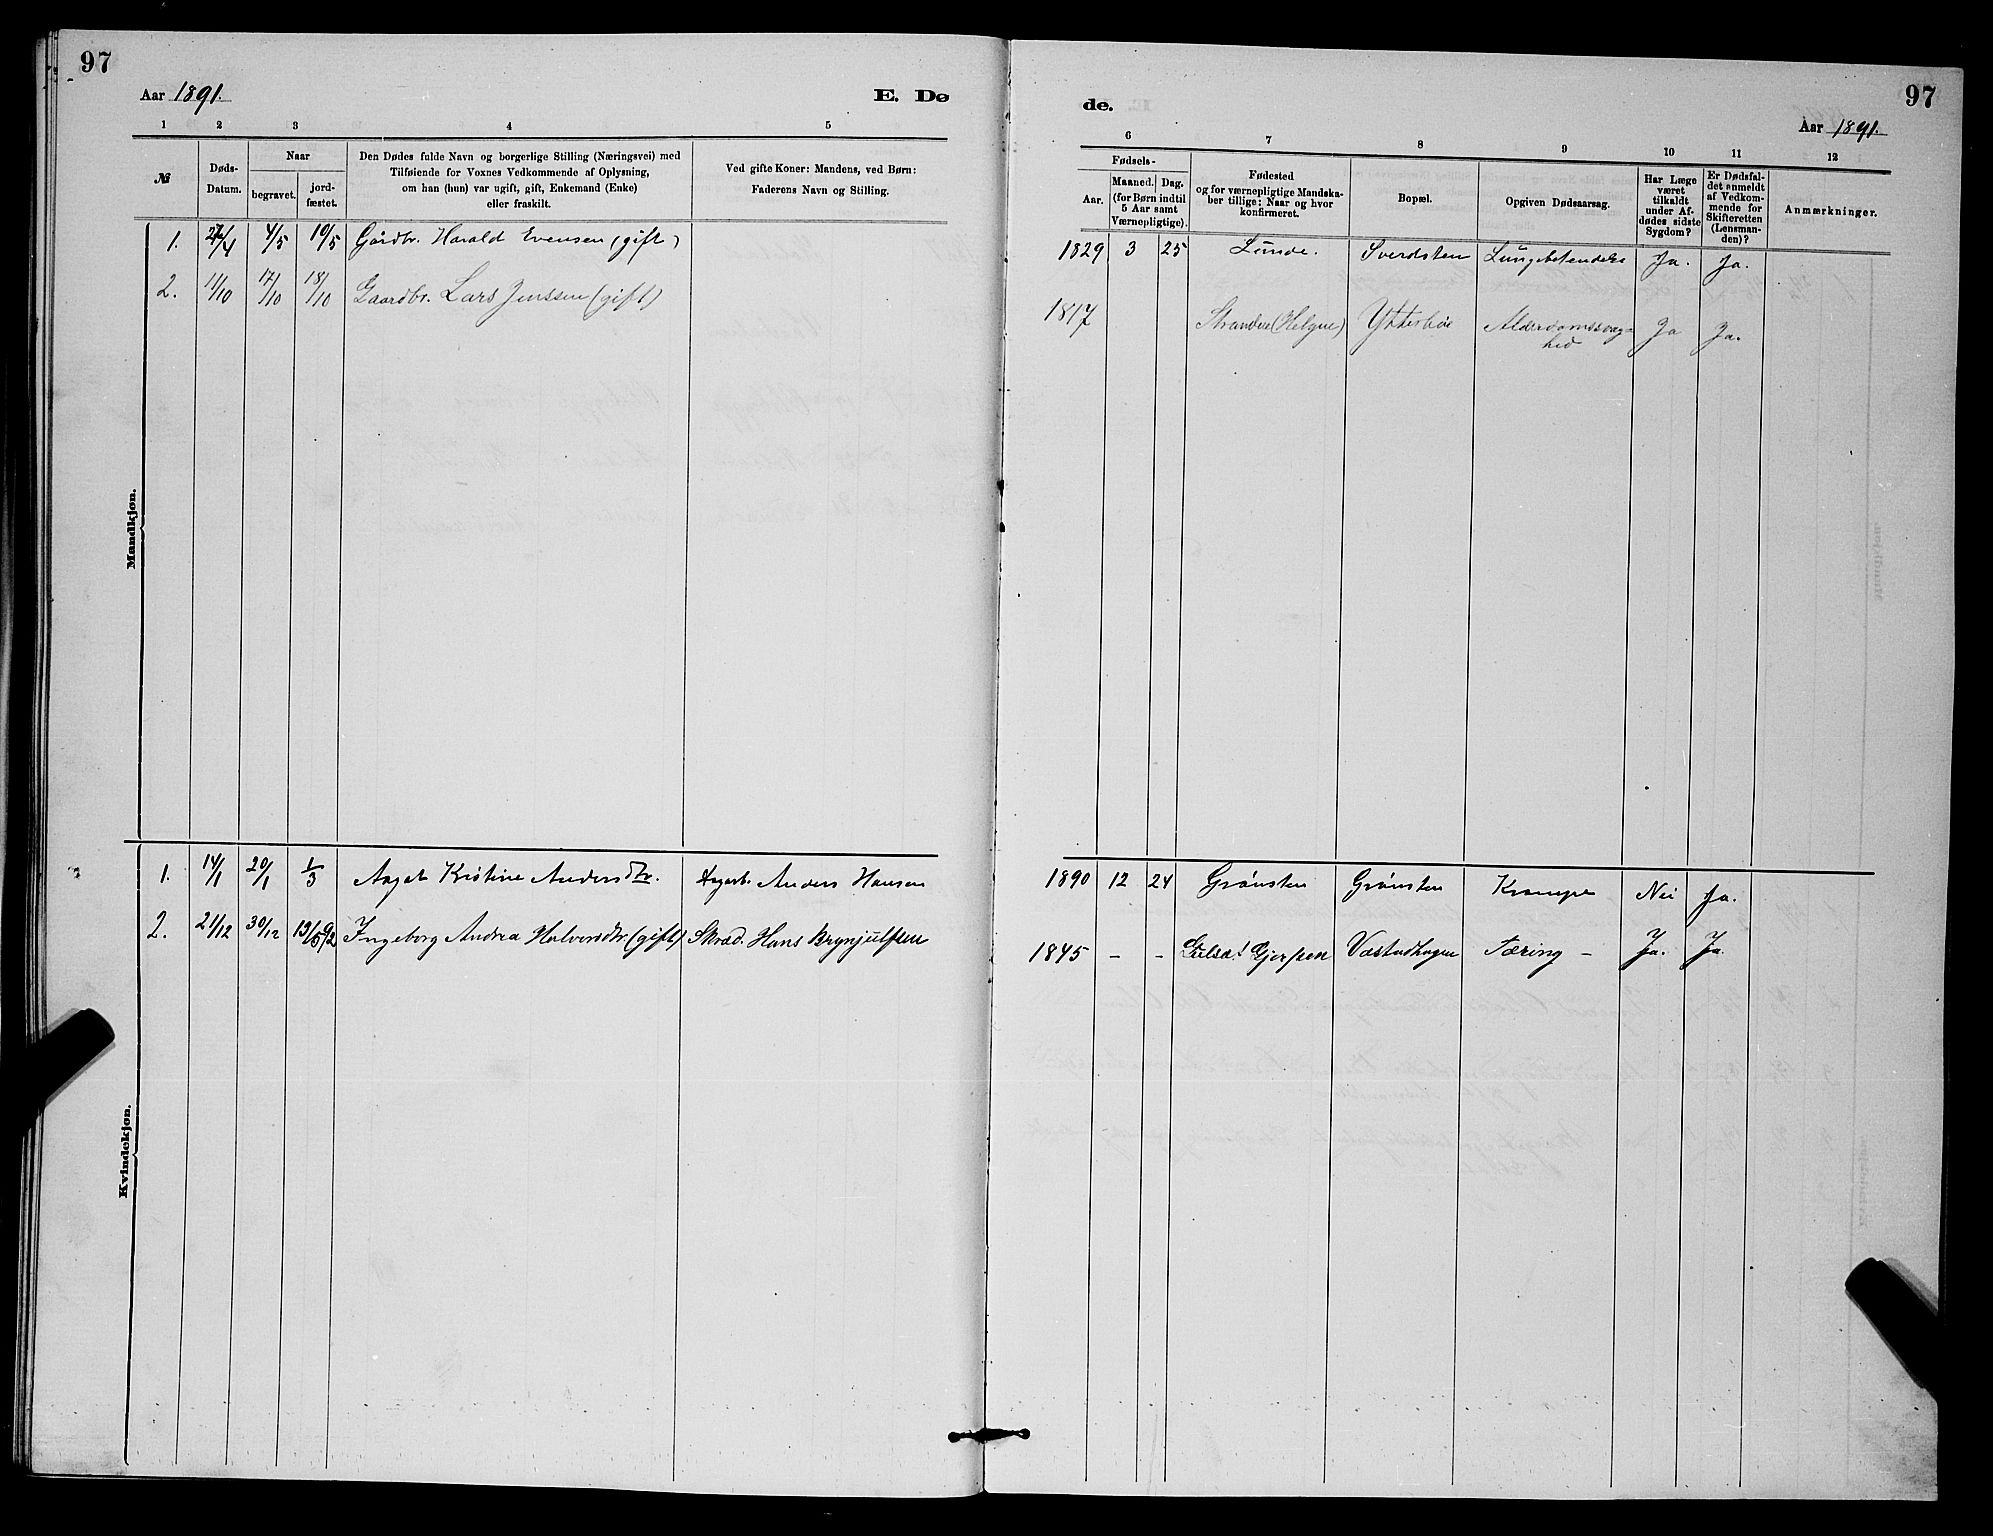 97
Aar 1891.
E. Dø
1 2 3 4 5
№
Døds-
Datum.
Naar
begravet.
jord-
fæstet.
Den Dødes fulde Navn og borgerlige Stilling (Næringsvei) med
Tilføiende for Voxnes Vedkommende af Oplysning,
om han (hun) var ugift, gift, Enkemand (Enke)
eller fraskilt.
Ved gifte Koner: Mandens, ved Børn:
Faderens Navn og Stilling.
Mandkjøn.
1. 4/5 10/5 Gårdbr. Harald Evensen (gift)
2. 11/10 17/10 18/10 Gaardbr. Lars Jenssen (gift)
Kvindekjøn.
1. 14/1 20/1 1/3 Aagot Kristine Andersdtr. Anders Hansen
2. 21/12 30/12 13/5 92 Ingeborg Andrea Halvorsdtr. (gift) Skræd. Hans Brynjulfsen
97
de.
Aar 1891.
6 7 8 9 10 11 12
Fødsels-
Aar.
Maaned.
Dag.
(for Børn indtil
5 Aar samt
Værnepligtige).
Fødested
og for værnepligtige Mandska-
ber tillige: Naar og hvor
konfirmeret.
Bopæl.
Opgiven Dødsaarsag.
Har Læge
været
tilkaldt
under Af-
dødes sidste
Sygdom?
Er Dødsfal-
det anmeldt
af Vedkom-
mende for
Skifteretten
(Lensman-
den)?
Anmærkninger.
1829 3 25 Lunde. Sverdsten Lungebetendelse Ja. Ja.
1817 Strandene (Helgen) Ytterbøe Alderdomssvag-
hed Ja Ja.
1890 12 24 Grønsten Grønsten Krampe Nei Ja.
1845 - - Gulset Gjerpen Væstadhagen Tæring - Ja. Ja.